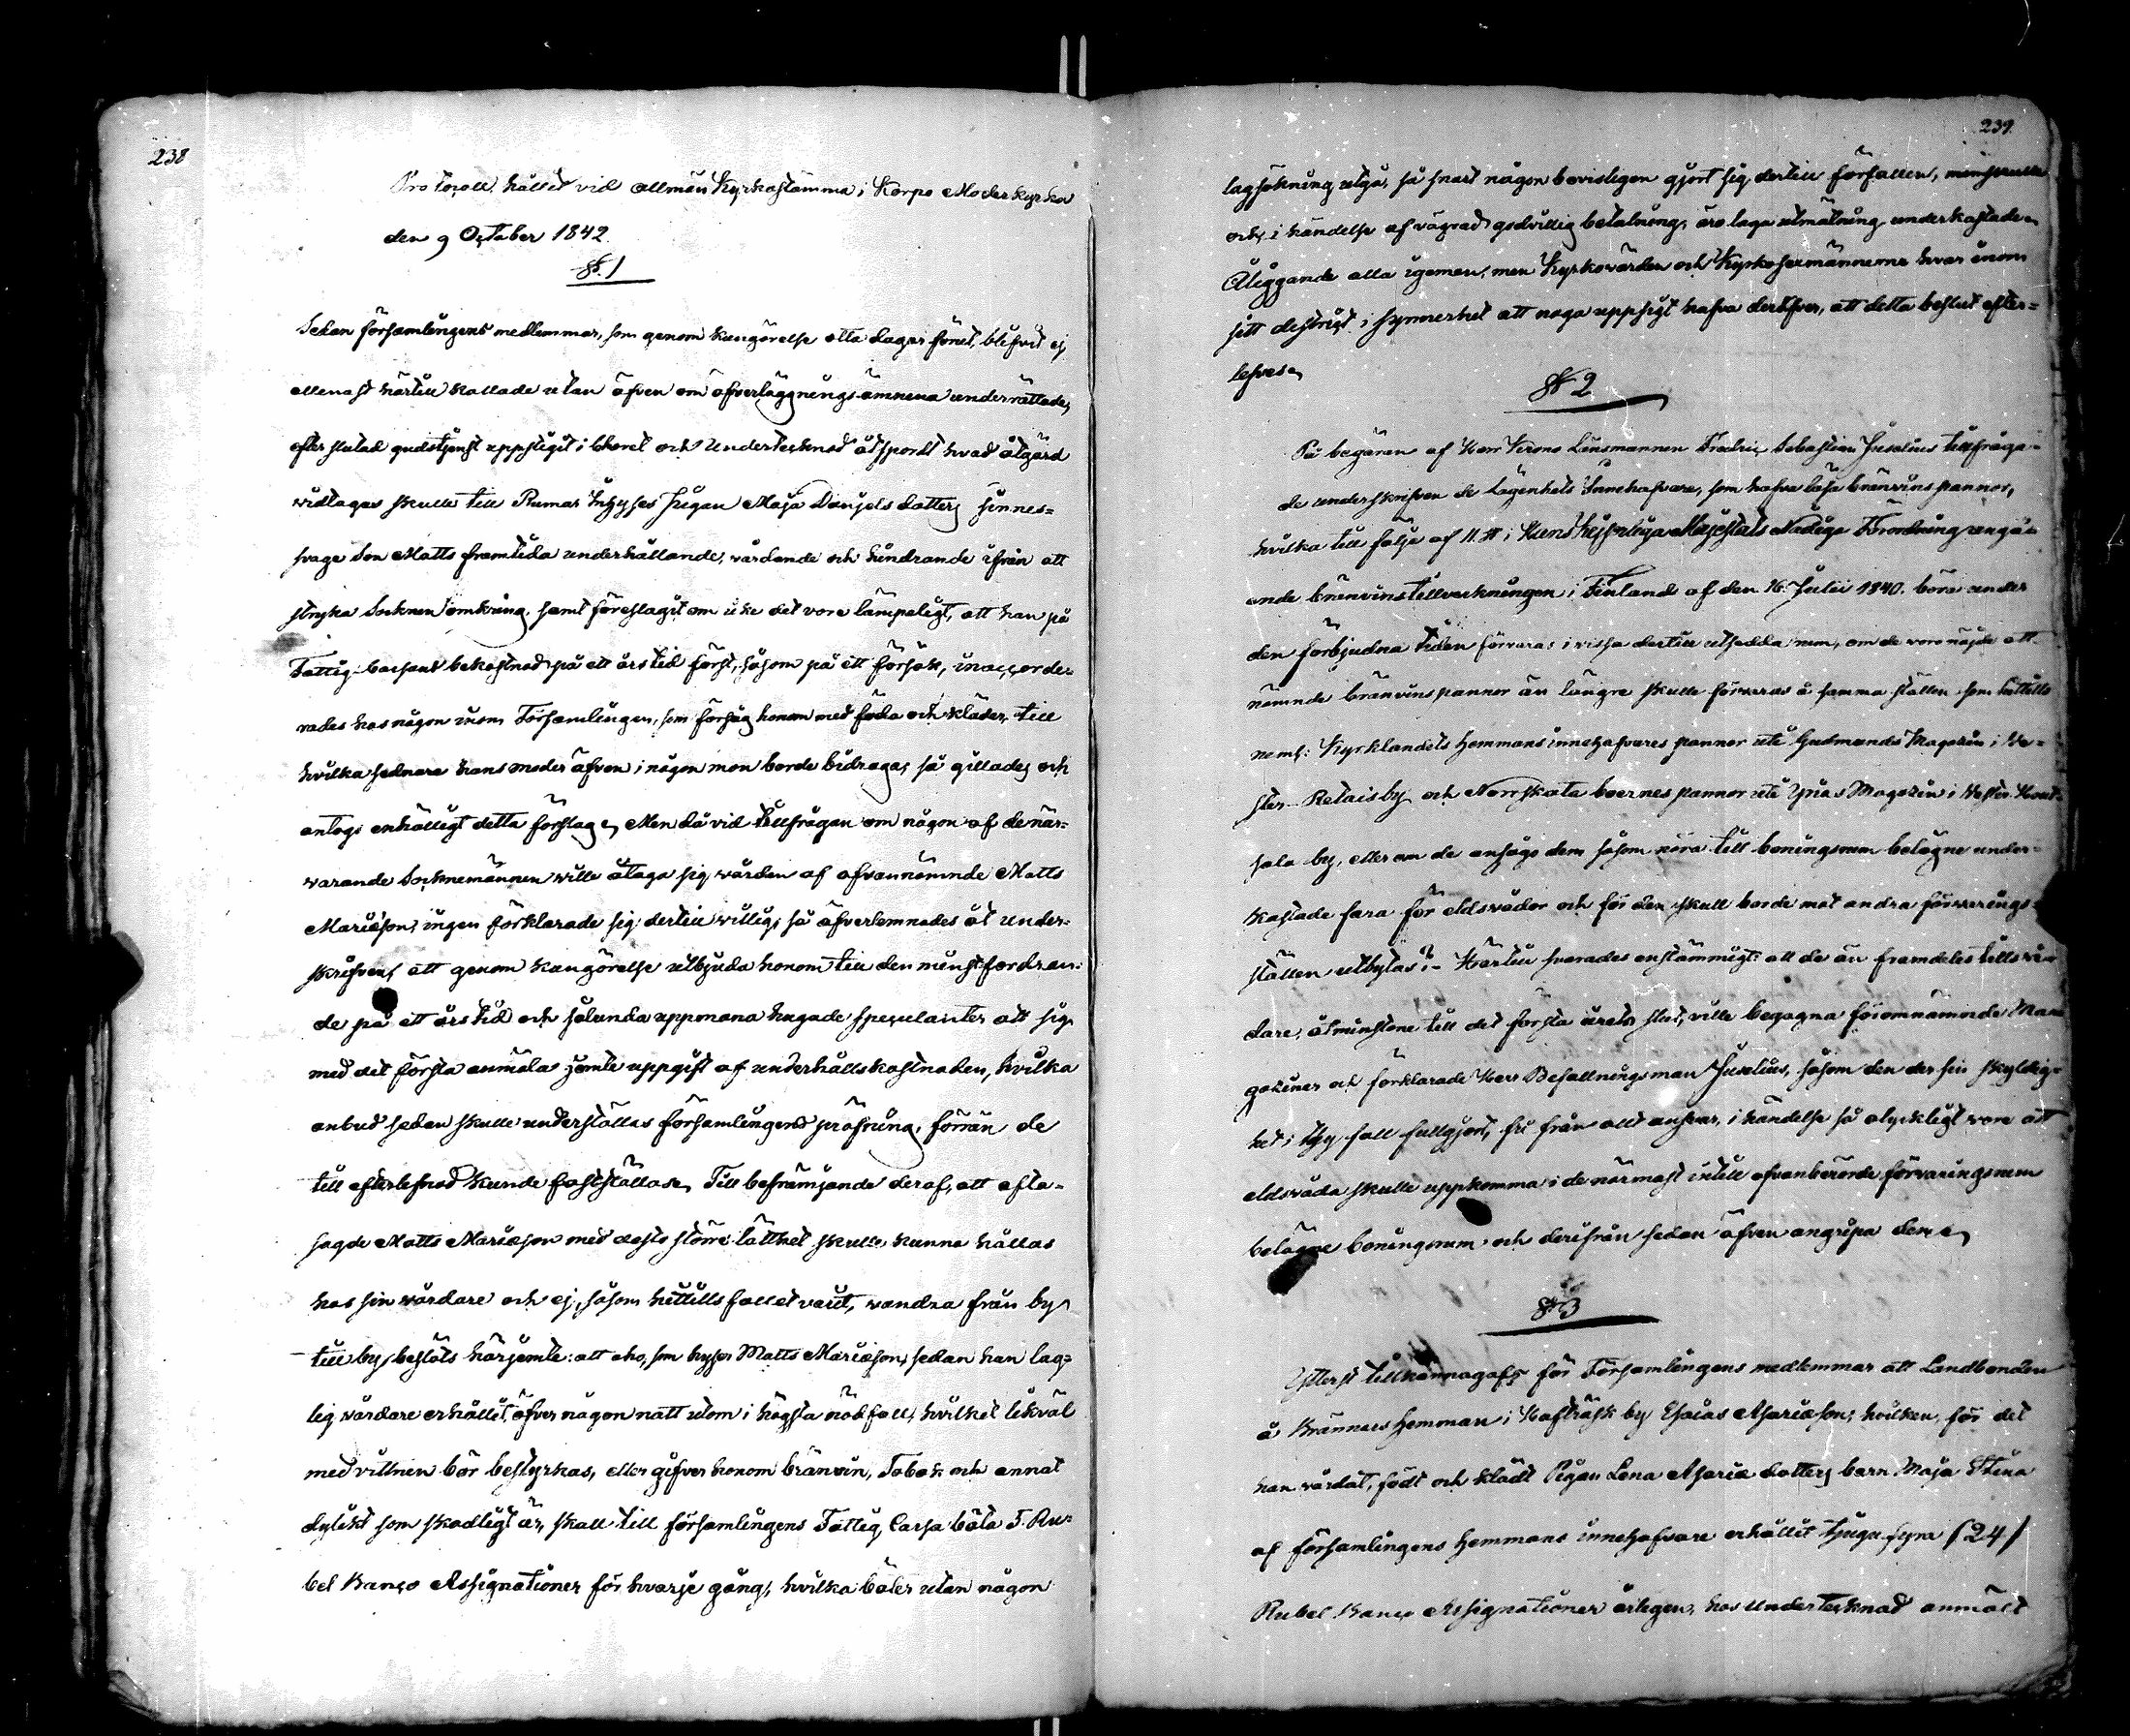 238
Protocoll, hållet vid allmän Kyrkostämma i Korpo Moderkyrka
den 9 October 1842.
§. 1
Sedan församlingens medlemmar, som genom kungörelse otta dagar förut, blifvit ej
allenast härtill kallade utan äfven om öfverläggnings ämnena underrättade,
efter slutad gudstjenst uppstigit i choret och Undertecknad åtspordt hvad åtgärd
vidtagas skulle till Rumar Inhyses Pigan Maja Danjels dotters sinnes=
svage Son Matts framtida underhållande, vårdande och hindrande ifrån att
stryka Socknen omkring, samt föreslagit om icke det vore lämpeligt, att han på
Fattig-cassans bekostnad på ett års tid först, såsom på ett försök, inaccorde-
rades hos någon inom Församlingen, som försåg honom med föda och kläder, till
hvilka sednare hans moder äfven i någon mon borde bidraga; så gillades och
antogs enhälligt detta förslag. Men då vid tillfrågan om någon af de när-
varande Socknemännen ville åtaga sig vården af ofvannämnde Matts
Mariæson, ingen förklarade sig dertill villig; så öfverlemnades åt under-
skrifven, att genom kungörelse utbjuda honom till den minst fordran-
de på ett års tid och sålunda uppmana hugade speculanter att sig
med det första anmäla jemte uppgift af underhållskostnaden, hvilka
anbud sedan skulle underställas församlingens pröfning, förrän de
till efterlefnad kunde fastställas. Till befrämjande deraf, att ofta-
sagde Matts Mariæson med desto större lätthet skulle kunna hållas
hos sin vårdare och ej, såsom hittills fallet varit, vandra från by
till by, beslöts härjemte: att eho, som hyser Matts Mariæson, sedan han lag-
lig vårdare erhållit, öfver någon natt utom i högsta nödfall, hvilket likväl
med vittnen bör bestyrkas, eller gifver honom bränvin, Tobak och annat
dylikt som skadligt är, skall till församlingens Fattig Cassa böta 5 Ru-
bel Banco Assignationer för hvarje gång, hvilka böter utan någon
239.
lagsökning utgå, så snart någon bevisligen gjort sig dertill förfallen,
och i händelse af vägrad godvillig betalning, äro laga utmätning underkastade.
Åliggande alla igemen, men Kyrkovärden och Kyrkosexmännerne hvar inom
sitt district i synnerhet att noga uppsigt hafva deröfver, att detta beslut efter-
lefves.
§ 2
På begäran af Herr Krono Länsmannen Fredric Sebastian Juselius tillfråga-
de underskrifven de Lägenhets Innehafvare, som hafva lösa bränvins pannor,
hvilka till följe af 11. § i Hans Kejserliga Majestäts Nådiga Förordning angå-
ende bränvinstillverkningen i Finland af den 16. Julii 1840. böra under
den förbjudna tiden förvaras i vissa dertill utsedda rum, om de voro nöjde att
nämnde bränvins pannor än längre skulle förvaras å samma ställen som hittills
neml: Kyrklandets Hemmans innehafvares pannor uti Gudmunds Magazin i We-
ster Retaisby och Norrskata boernes pannor uti Yrias Magazin i Wester
sala by, eller om de ansågo dem såsom nära till boningsrum belägne under-
kastade fara för eldsvådor och för den skull borde mot andra förvarings-
ställen utbytas? - Härtill svarades enstämmigt: att de än framdeles tills vi-
dare, åtminstone till det första årets slut, ville begagna förernämnde Ma-
gaziner och förklarade Herr Befallningsman Juselius, såsom den der sin skyldig-
het i thy fall fullgjort, fri från allt ansvar, i händelse så olyckligt vore att
eldsvåda skulle uppkomma i de närmast intill ofvanberörde förvaringsrum
belägne boningsrum och derifrån sedan äfven angripa dem.
§ 3
Ytterst tillkännagafs för Församlingens medlemmar att Landbonden
å Brännars Hemman i Hafträsk by Esaias Asariæson, hvilken, för det
han vårdat, födt och klädt Pigan Lena Asariæ dotters barn Maja Stina
af församlingens Hemmans innehafvare erhållit tjugu fyra (24)
Rubel Banco Assignationer årligen, hos Undertecknad anmält